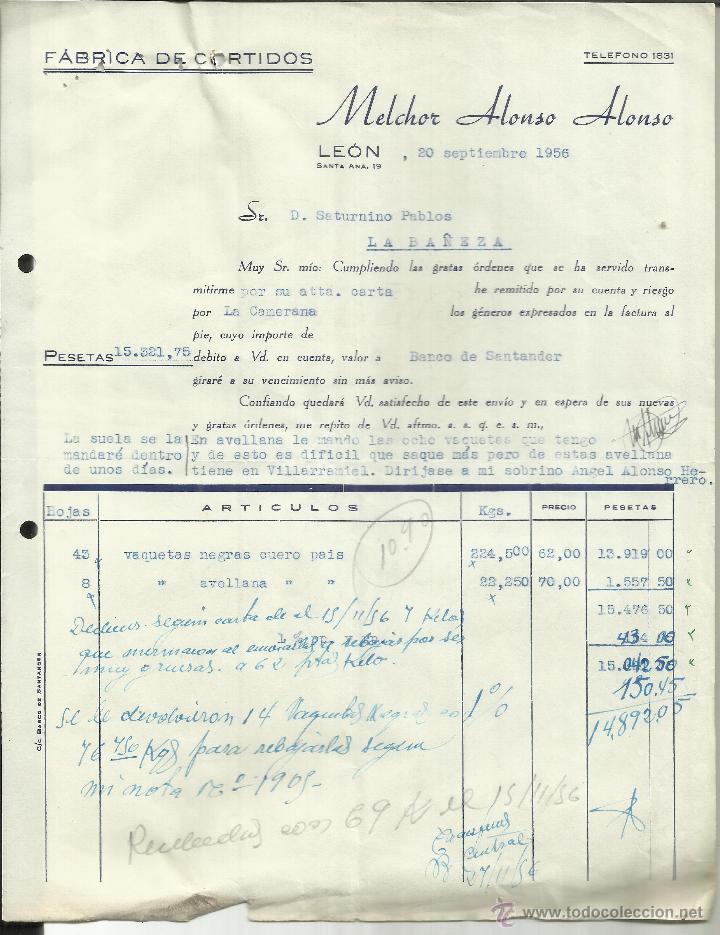 FÁBRICA DE CURTIDOS
TELEFONO 1831
Melchor Alonso Alonso
LEÓN , 20 septiembre 1956
SANTA ANA, 19
Sr. D. Saturnino Pablos
LA BAÑEZA
Muy Sr. mío: Cumpliendo las gratas órdenes que se ha servido trans-
mitirme por su atta. carta he remitido por su cuenta y riesgo
por La Camerana los géneros expresados en la factura al
pie, cuyo importe de
PESETAS 15.321,75 debito a Vd. en cuenta, valor a Banco de Santander
giraré a su vencimiento sin más aviso.
Confiando quedará Vd. satisfecho de este envío y en espera de sus nuevas
y gratas órdenes, me repito de Vd. aftmo. s. s. q. e. s. m.,
La suela se la En avellana le mando las ocho vaquetas que tengo
mandaré dentro y de esto es dificil que saque más pero de estas avellana
de unos días. tiene en Villarramiel. Dirijase a mi sobrino Angel Alonso He-
rrero.
Hojas ARTICULOS Kgs. PRECIO PESETAS
10.90
43 vaquetas negras cuero pais 224,500 62,00 13.919 00
8 " avellana " " 22,250 70,00 1.557 50
15.476 50
Dedicius segun carta de el 15/11/56 7 Kilos
que mermaron al
muy gruesas. a 62 ptas Kilo.
15.042 50
1% 150.45
14,892.05
se le devolvieron 14 Vaquetas Negras en
76 750 Kgs para rebajarlas segun
mi nota nº 1905-
con 69 K el 15/11/56
Central
27/11/56
C/C BANCO DE SANTANDER
www.todocoleccion.net